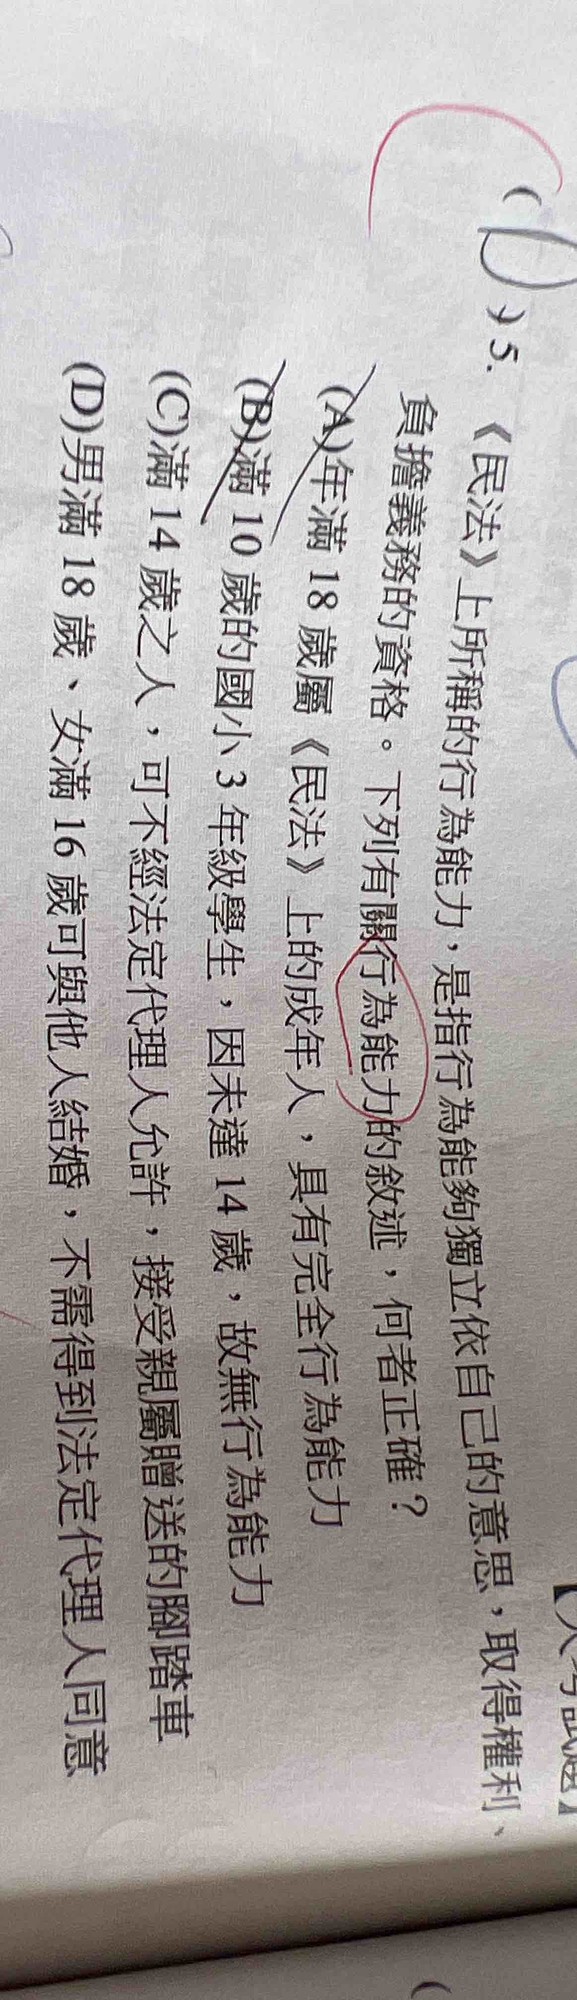 (D) 5.《民法》上所稱的行為能力，是指行為能夠獨立依自己的意思，取得權利、
負擔義務的資格。下列有關行為能力的敘述，何者正確？
(A)年滿 18 歲屬《民法》上的成年人，具有完全行為能力
(B)滿 10 歲的國小 3 年級學生，因未達 14 歲，故無行為能力
(C)滿 14 歲之人，可不經法定代理人允許，接受親屬贈送的腳踏車
(D)男滿 18 歲、女滿 16 歲可與他人結婚，不需得到法定代理人同意